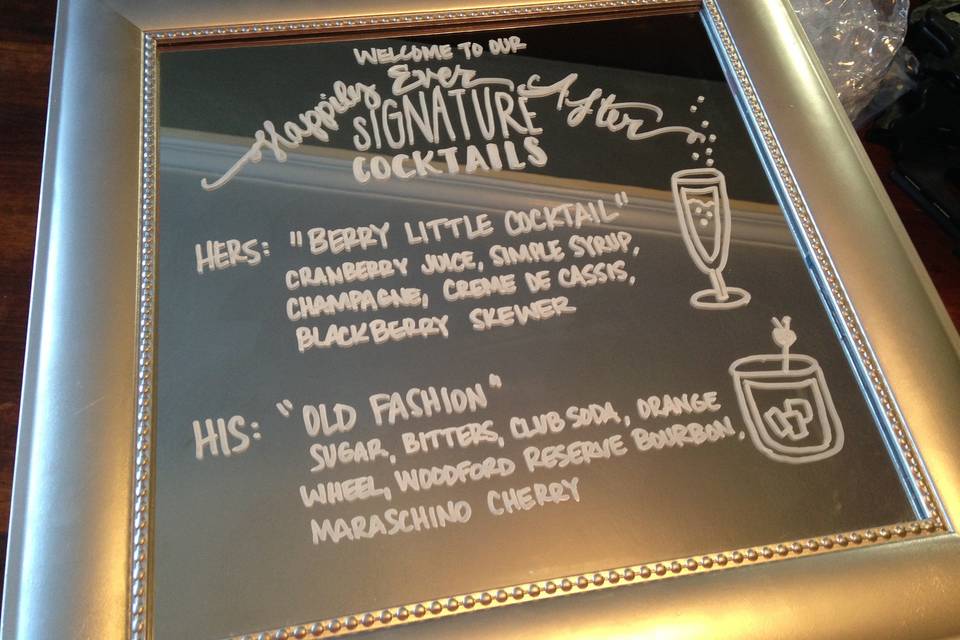 WELCOME TO OUR
Happily Ever After
SIGNATURE
COCKTAILS
HERS: "BERRY LITTLE COCKTAIL"
CRANBERRY JUICE, SIMPLE SYRUP,
CHAMPAGNE, CREME DE CASSIS,
BLACKBERRY SKEWER
HIS: "OLD FASHION"
SUGAR, BITTERS, CLUB SODA, ORANGE
WHEEL, WOODFORD RESERVE BOURBON,
MARASCHINO CHERRY